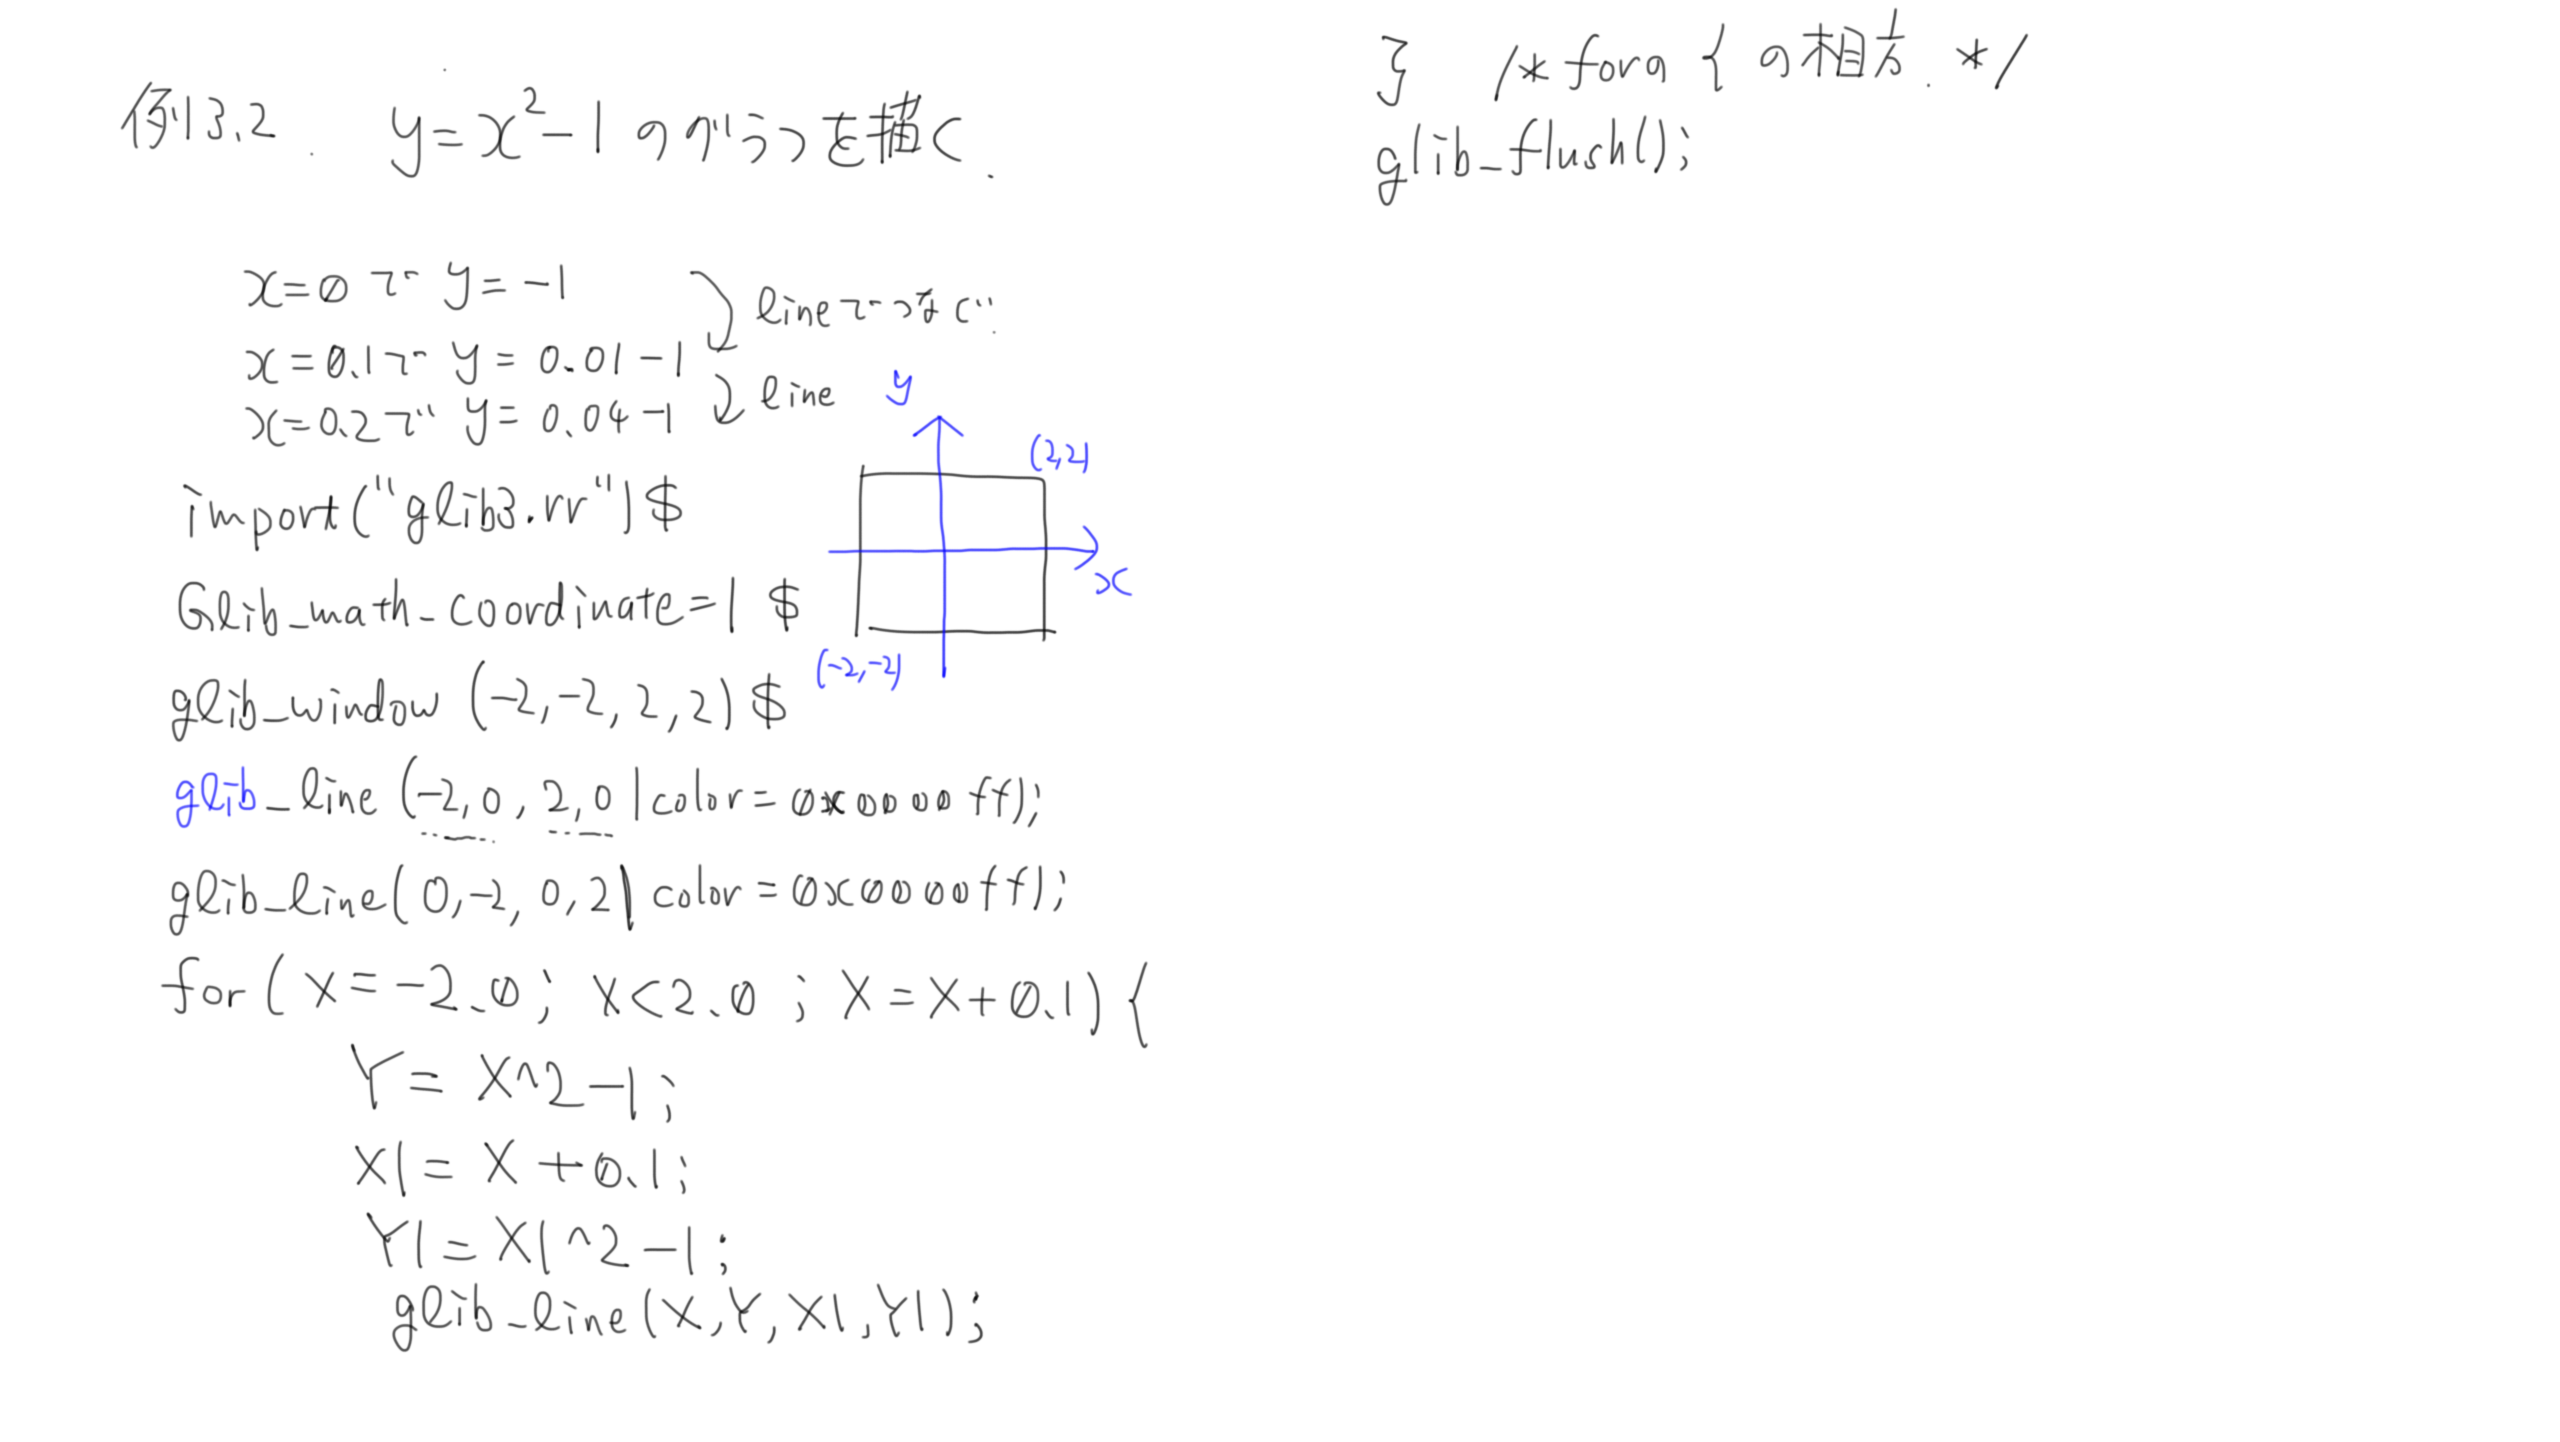 例3.2. y=x²-1 のグラフを描く.
x=0 で y=-1
lineでつなぐ.
x=0.1で y=0.01-1
line
x=0.2で y=0.04-1
y
(2,2)
x
(-2,-2)
import("glib3.rr")$
Glib_math_coordinate=1 $
glib_window(-2,-2,2,2)$
glib_line(-2,0,2,0|color=0x0000ff);
glib_line(0,-2,0,2|color=0x0000ff);
for(X=-2.0; X<2.0; X=X+0.1){
Y=X^2-1;
X1=X+0.1;
Y1=X1^2-1;
glib_line(X,Y,X1,Y1);
} /*forの { の相方. */
glib_flush();